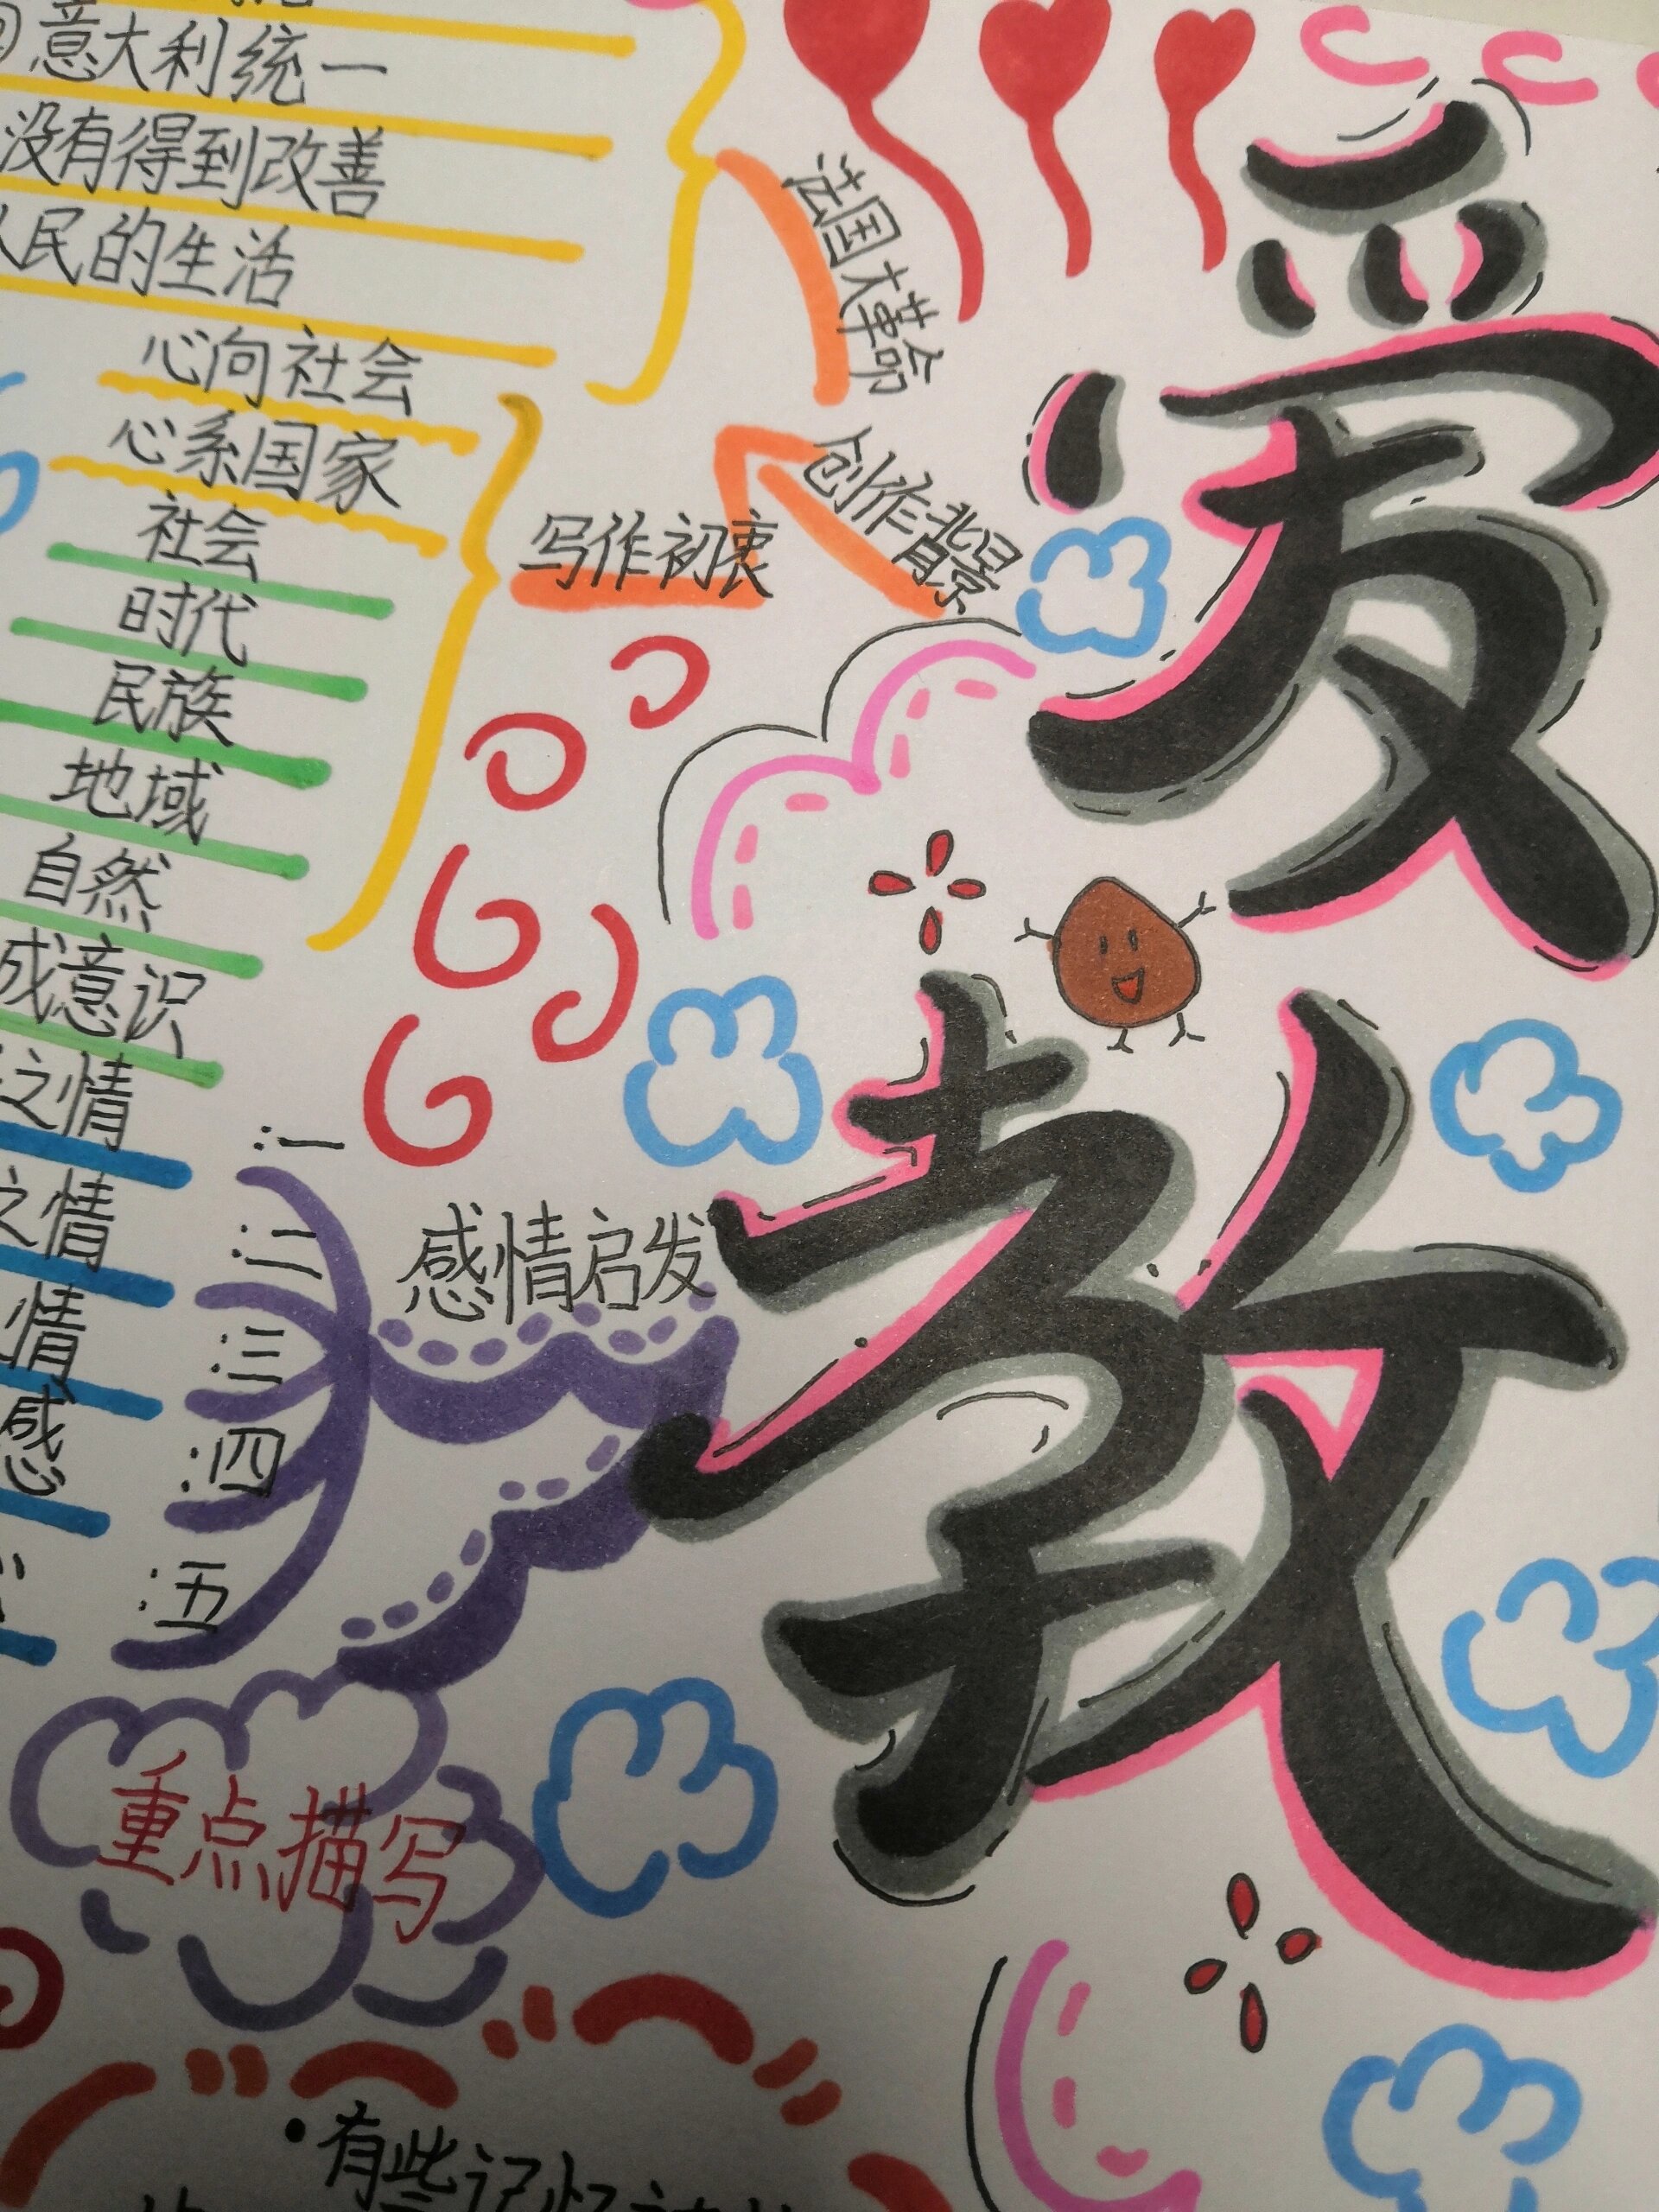 意大利统一
没有得到改善
人民的生活
法国大革命
心向社会
心系国家
社会
时代
民族
地域
自然
成意识
写作初衷
创作背景
爱的教
之情
之情
情
感
:一
:二
:三
:四
:五
感情启发
重点描写
·有些记忆